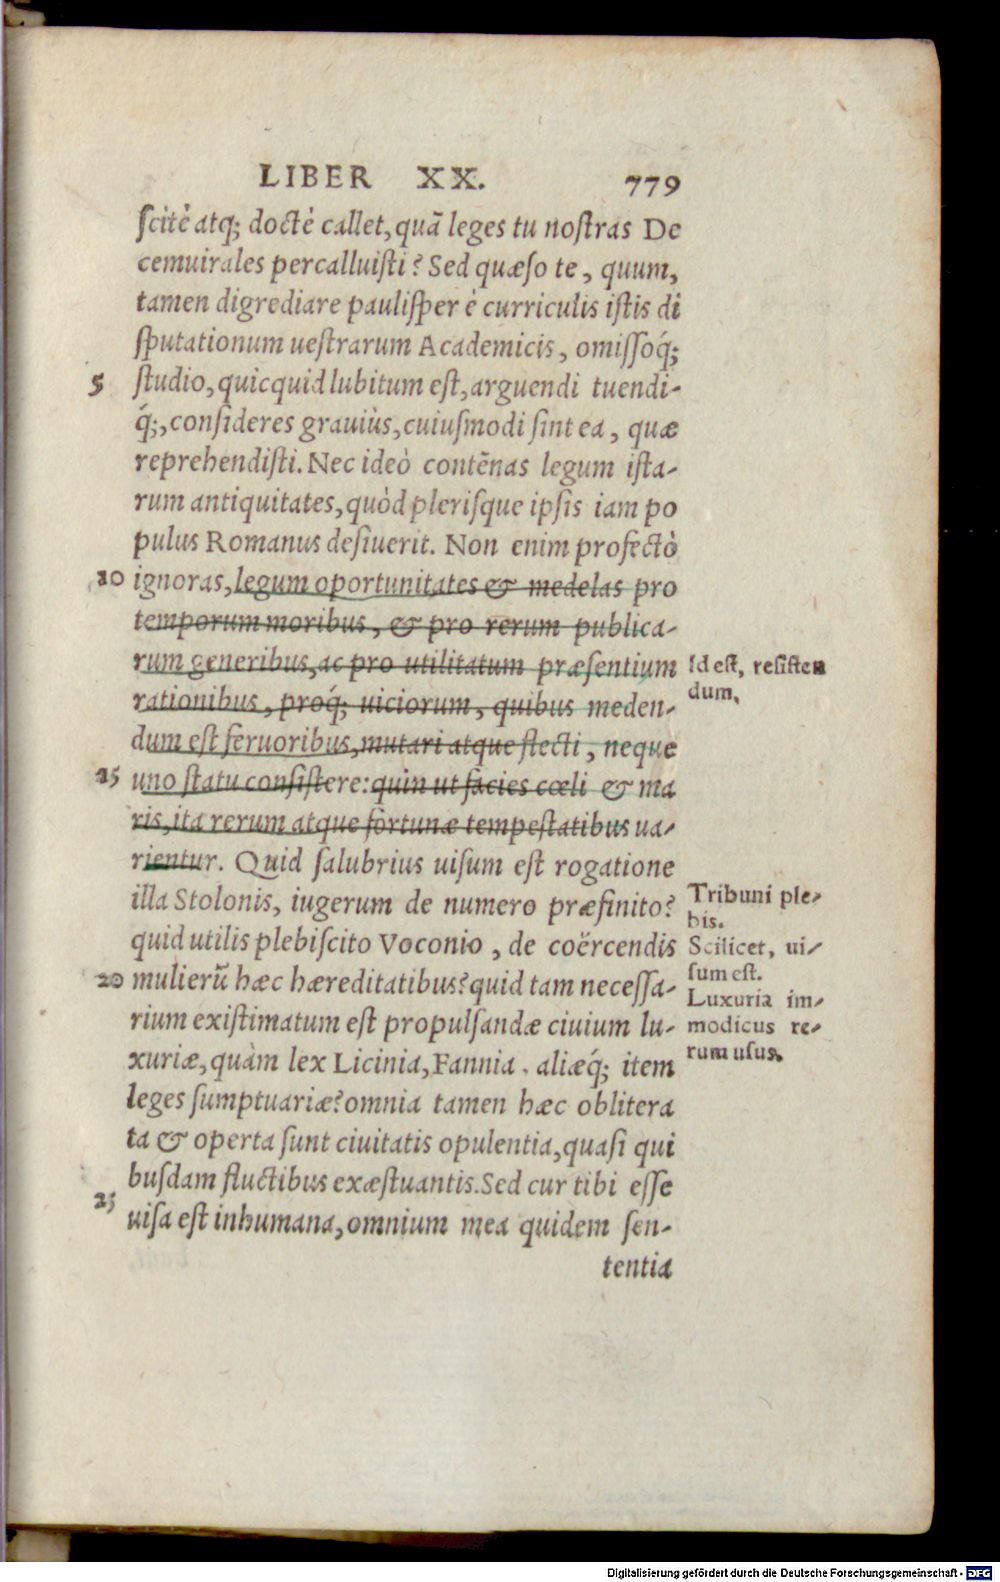 LIBER XX. 779
scitè atq; doctè callet, quā leges tu nostras De
cemuirales percalluisti? Sed quæso te, quum,
tamen digrediare paulisper è curriculis istis di
sputationum uestrarum Academicis, omissoq́;
5 studio, quicquid lubitum est, arguendi tuendi-
q́;, consideres grauiùs, cuiusmodi sint ea, quæ
reprehendisti. Nec ideò contēnas legum ista-
rum antiquitates, quòd plerisque ipsis iam po
pulus Romanus desiuerit. Non enim profectò
10 ignoras, legum oportunitates & medelas pro
temporum moribus, & pro rerum publica-
rum generibus, ac pro utilitatum præsentium
rationibus, proq́; uiciorum, quibus meden-
dum est feruoribus, mutari atque flecti, neque
15 uno statu consistere: quin ut facies cœli & ma
ris, ita rerum atque fortunæ tempestatibus ua-
rientur. Quid salubrius uisum est rogatione
illa Stolonis, iugerum de numero præfinito?
quid utilis plebiscito Voconio, de coërcendis
20 mulierū hæc hæreditatibus? quid tam necessa-
rium existimatum est propulsandæ ciuium lu-
xuriæ, quàm lex Licinia, Fannia. aliæq́; item
leges sumptuariæ? omnia tamen hæc oblitera
ta & operta sunt ciuitatis opulentia, quasi qui
busdam fluctibus exæstuantis. Sed cur tibi esse
25 uisa est inhumana, omnium mea quidem sen-
tentia
Id est, resisten
dum.
Tribuni ple-
bis.
Scilicet, ui-
sum est.
Luxuria im-
modicus re-
rum usus.
Digitalisierung gefördert durch die Deutsche Forschungsgemeinschaft - DFG